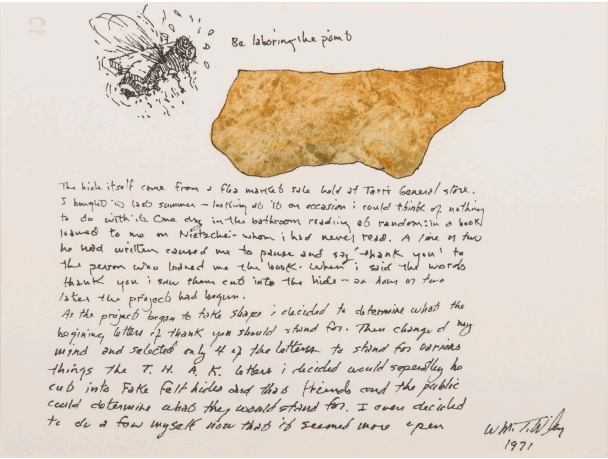 2
Be laboring the point
The hide itself came from a flea market sale held at Torri General store.
I bought it last summer - looking at it on occasion i could think of nothing
to do with it. One day in the bathroom reading at random in a book
loaned to me on Nietzche - whom i had never read. A line or two
he had written caused me to pause and say "thank you" to
the person who loaned me the book. When i said the words
thank you i saw them cut into the hide - an hour or two
later the project had begun.
As the project began to take shape i decided to determine what the
begining letters of thank you should stand for. Then changed my
mind and selected only 4 of the letters to stand for various
things the T. H. A. K. letters i decided would seperatly be
cut into fake felt hides and that friends and the public
could determine what they would stand for. I even decided
to do a few myself now that it seemed more open
Wm. T. Wiley
1971